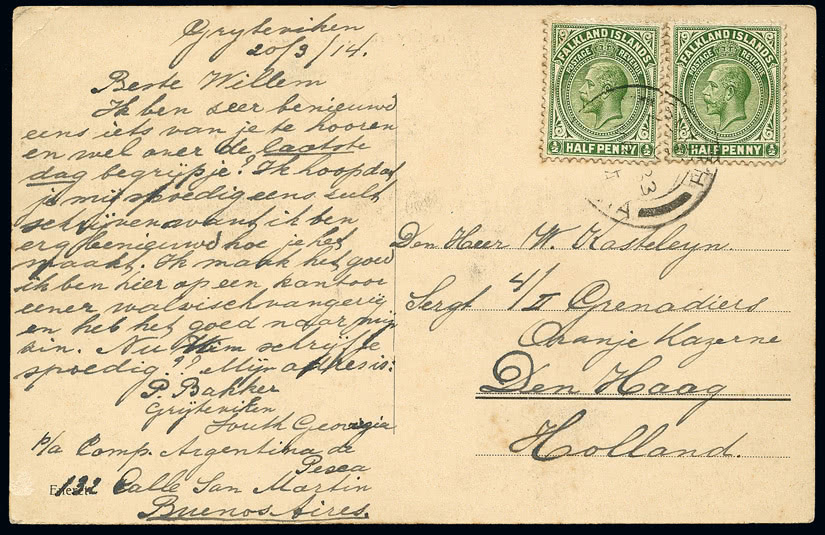 Gryteviken
20/3/14.
Beste Willem
Ik ben zeer benieuwd
eens iets van je te hooren
en wel over de laatste
dag begrijpje? Ik hoop dat
je mij spoedig eens zult
schrijven want ik ben
erg benieuwd hoe je het
maakt. Ik maak het goed
ik ben hier op een kantoor
eener walvischvangerij
en heb het goed naar mijn
zin. Nu Wem schrijf je
spoedig?? Mijn adres is:
P. Bakker
Gryteviken
South Georgia
p/a Comp. Argentina de
Pesca
132 Calle San Martin
Buenos Aires.
FALKLAND ISLANDS
POSTAGE REVENUE
½ HALF PENNY ½
FALKLAND ISLANDS
POSTAGE REVENUE
½ HALF PENNY ½
Den Heer W. Kasteleyn.
Sergt 4/II Grenadiers
Oranje Kazerne
Den Haag
Holland.